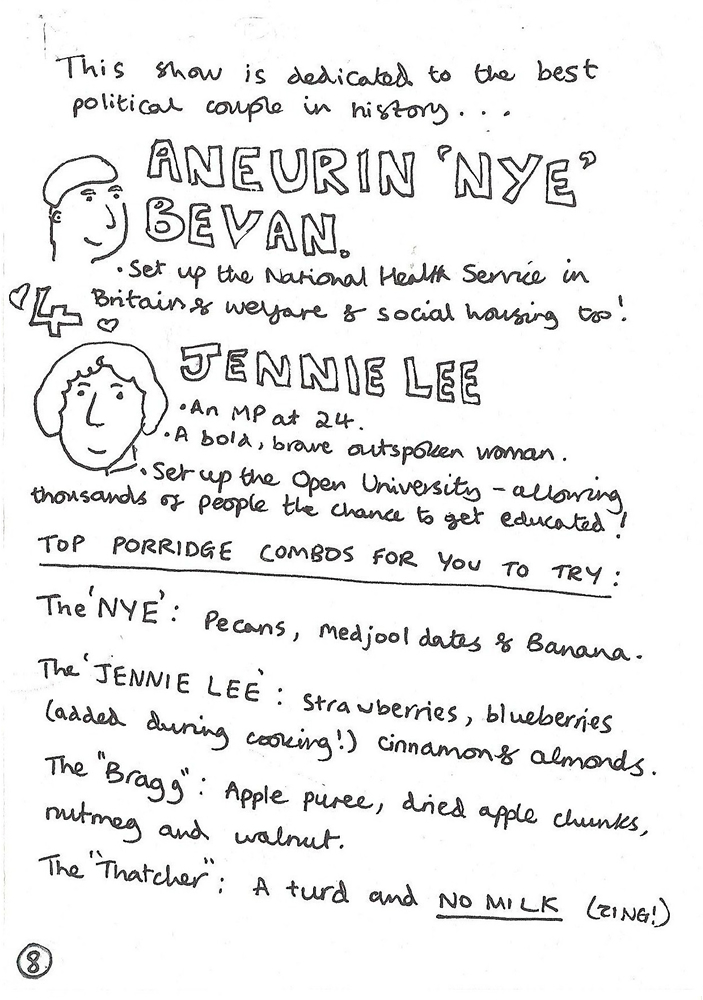 This show is dedicated to the best
political couple in history...
ANEURIN 'NYE'
BEVAN.
• Set up the National Health Service in
Britain & welfare & social housing too!
4
JENNIE LEE
• An MP at 24.
• A bold, brave outspoken woman.
• Set up the Open University - allowing
thousands of people the chance to get educated!
TOP PORRIDGE COMBOS FOR YOU TO TRY:
The 'NYE': Pecans, medjool dates & Banana.
The 'JENNIE LEE': strawberries, blueberries
(added during cooking!) cinnamon & almonds.
The "Bragg": Apple puree, dried apple chunks,
nutmeg and walnut.
The "Thatcher": A turd and NO MILK (ZING!)
8